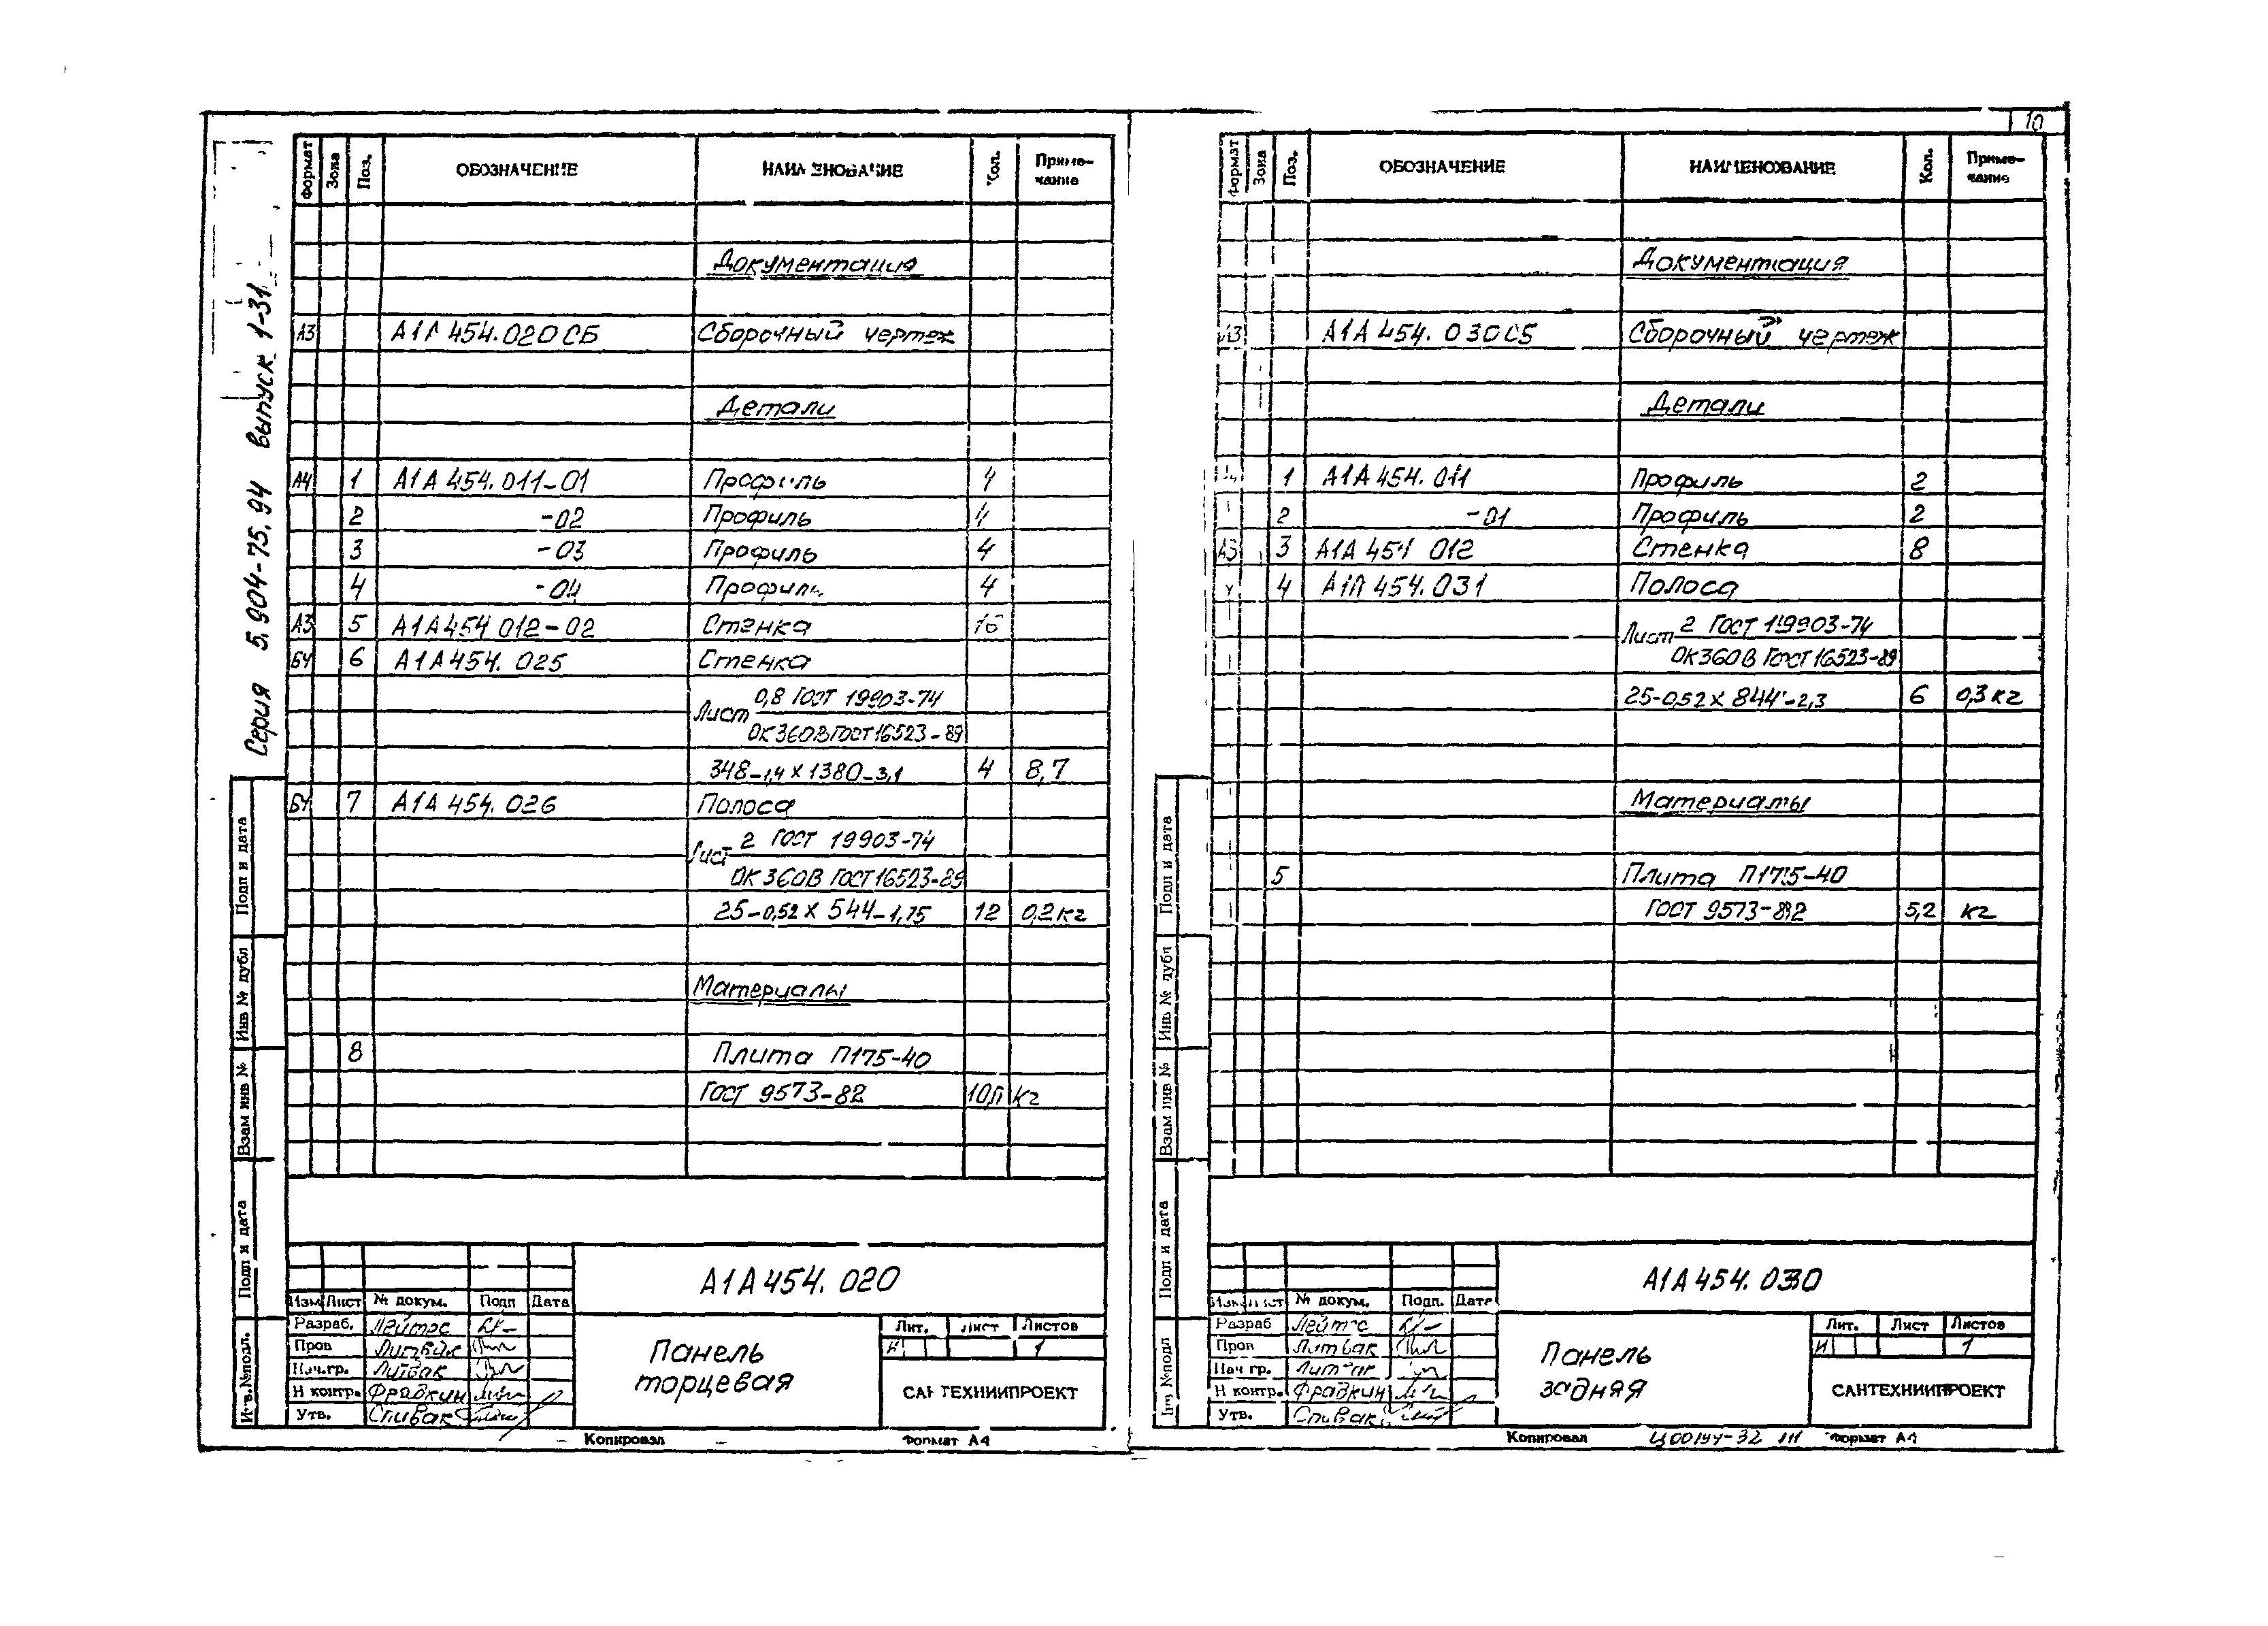 10
Серия 5.904-75.94 Выпуск 1-31
Формат Зона Поз. ОБОЗНАЧЕНИЕ НАИМЕНОВАНИЕ Кол. Приме-
чание
Документация
А3 А1А 454.020 СБ Сборочный чертеж
Детали
А4 1 А1А 454.011-01 Профиль 4
2 -02 Профиль 4
3 -03 Профиль 4
4 -04 Профиль 4
А3 5 А1А454 012-02 Стенка 16
БЧ 6 А1А454.025 Стенка
Лист 0,8 ГОСТ 19903-74
ОК360В ГОСТ16523-89
348-1,4 х 1380-3,1 4 8,7
БЧ 7 А1А 454.026 Полоса
Лист 2 ГОСТ 19903-74
ОК 360В ГОСТ16523-89
25-0,52 х 544-1,75 12 0,2кг
Материалы
8 Плита П175-40
ГОСТ 9573-82 кг
Подп и дата
Инв № дубл
Взам инв №
Подп и дата
Инв.№подл.
А1А454.020
Изм Лист № докум. Подп Дата
Разраб. Лейтес
Пров Литвак
Нач.гр. Литвак
Н контр. Фрадкин
Утв. Спивак
Панель
торцевая
Лит. Лист Листов
И 1
САНТЕХНИИПРОЕКТ
Копировал Формат А4
Формат Зона Поз. ОБОЗНАЧЕНИЕ НАИМЕНОВАНИЕ Кол. Приме-
чание
Документация
А3 А1А 454.030СБ Сборочный чертеж
Детали
1 А1А 454.011 Профиль 2
2 -01 Профиль 2
А3 3 А1А 454 012 Стенка 8
4 А1А 454.031 Полоса
Лист 2 ГОСТ 19903-74
ОК360В ГОСТ16523-89
25-0,52 х 844-2,3 6 0,3 кг
Материалы
5 Плита П175-40
ГОСТ 9573-82 5,2 кг
Подп и дата
Инв № дубл
Взам инв №
Подп и дата
Инв №подл
А1А454.030
Изм Лист № докум. Подп. Дата
Разраб Лейтес
Пров Литвак
Нач гр. Литвак
Н контр. Фрадкин
Утв. Спивак
Панель
задняя
Лит. Лист Листов
И 1
САНТЕХНИИПРОЕКТ
Копировал Формат А4